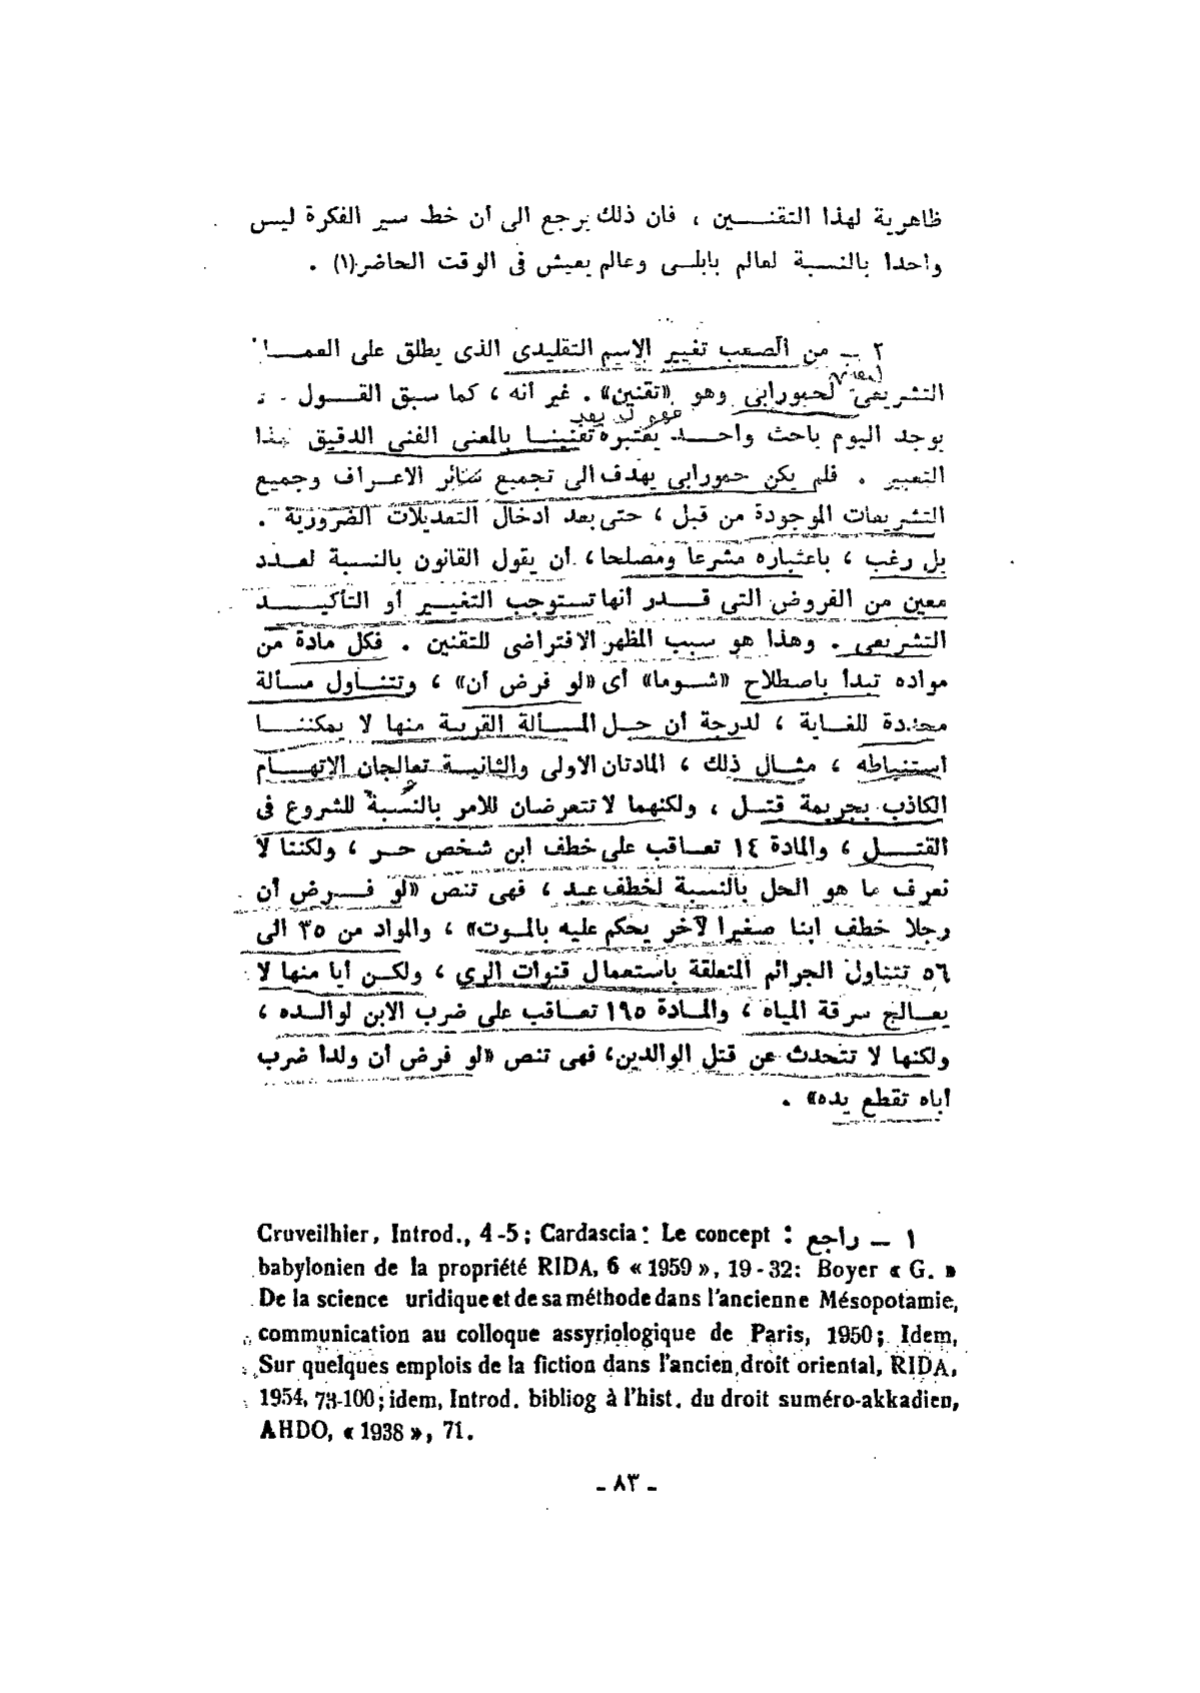 ظاهرية لهذا التقنــــين ، فان ذلك يرجع الى أن خط سير الفكرة ليس
واحدا بالنسبة لعالم بابلــى وعالم يعيش فى الوقت الحاضر(١) .
٢ ــ من الصعب تغيير الاسم التقليدى الذى يطلق على العمــــل
التشريعى لحمورابى وهو «تقنين» . غير أنه ، كما سبق القــــول
يوجد اليوم باحث واحــــد يعتبره تقنينــا بالمعنى الفنى الدقيق لهذا
التعبير . فلم يكن حمورابى يهدف الى تجميع سائر الاعــراف وجميع
التشريعات الموجودة من قبل ، حتى بعد ادخال التعديلات الضرورية .
بل رغب ، باعتباره مشرعا ومصلحا، أن يقول القانون بالنسبة لعــدد
معين من الفروض التى قــــدر أنها تستوجب التغيــير أو التأكيــــد
التشريعى . وهذا هو سبب المظهر الافتراضى للتقنين . فكل مادة من
مواده تبدأ باصطلاح «شــوما» أى «لو فرض أن» ، وتتنــاول مسألة
محددة للغــاية ، لدرجة أن حــل المســألة القريبة منها لا يمكننــا
استنباطه ، مثــال ذلك ، المادتان الاولى والثانيــة تعالجان الاتهــام
الكاذب بجريمة قتــل ، ولكنهما لا تتعرضان للامر بالنسبة للشروع فى
القتــــل ، والمادة ١٤ تعــاقب على خطف ابن شخص حــر ، ولكننا لا
نعرف ما هو الحل بالنسبة لخطف عبد ، فهى تنص «لو فــــرض أن
رجلا خطف ابنا صغيرا لآخر يحكم عليه بالمــوت» ، والمواد من ٣٥ الى
٥٦ تتناول الجرائم المتعلقة باستعمال قنوات الرى ، ولكــن أيا منها لا
يعــالج سرقة المياه ، والمــادة ١٩٥ تعــاقب على ضرب الابن لوالــده ،
ولكنها لا تتحدث عن قتل الوالدين، فهى تنص «لو فرض أن ولدا ضرب
أباه تقطع يده» .
١ ــ راجع : Cruveilhier, Introd., 4-5; Cardascia: Le concept
babylonien de la propriété RIDA, 6 « 1959 », 19-32: Boyer « G. »
De la science uridique et de sa méthode dans l'ancienne Mésopotamie,
communication au colloque assyriologique de Paris, 1950; Idem,
Sur quelques emplois de la fiction dans l'ancien droit oriental, RIDA,
1954, 73-100; idem, Introd. bibliog à l'hist. du droit suméro-akkadien,
AHDO, « 1938 », 71.
- ٨٣ -